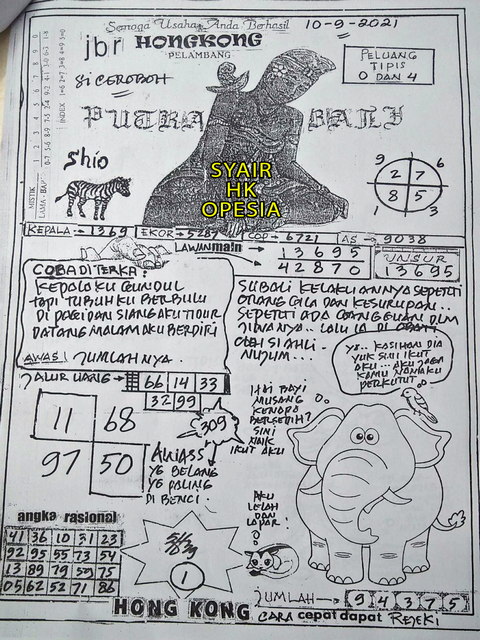 Semoga Usaha Anda Berhasil
10-9-2021
jbr HONGKONG
PELAMBANG
SI CEROBOH
PELUANG
TIPIS
0 DAN 4
PUTRA BALI
Shio
SYAIR
HK
OPESIA
9 6
2 7
8 5
1 3
MISTIK
INDEX
KEPALA = 1369
EKOR = 5287
COP = 6721
AS = 9038
LAWAN main
1 3 6 9 5
4 2 8 7 0
UNSUR
13695
COBA DITERKA:
KEPALAKU GUNDUL
TAPI TUBUHKU BERBULU
DI PAGI DAN SIANG AKU TIDUR
DATANG MALAM AKU BERDIRI
AWAS! JUMLAHNYA.
SUBALI KELAKUANNYA SEPERTI
ORANG GILA DAN KESURUPAN..
SEPERTI ADA GANGGUAN DLM
JIWANYA.. LALU IA DI OBATI
OLEH SI AHLI.
NUJUM...
YA.. KASIHAN DIA
YUK SINI IKUT
AKU... AKU JAGA
KAMU NANAKU
PERKUTUT
JALUR UANG
66 14 33
32 99
309
11 68
97 50
HAI BAYI
MUSANG
KENAPA
BERSEDIH?
SINI
NAIK
IKUT AKU
AWASS
YG BELANG
YG PALING
DI BENCI.
AKU
LELAH
DAN
LAPAR!
angka rasional
41 36 10 31 23
92 95 55 73 54
13 89 79 59 75
05 62 52 71 86
1
JUMLAH
9 4 3 7 5
HONG KONG CARA cepat dapat REJEKI